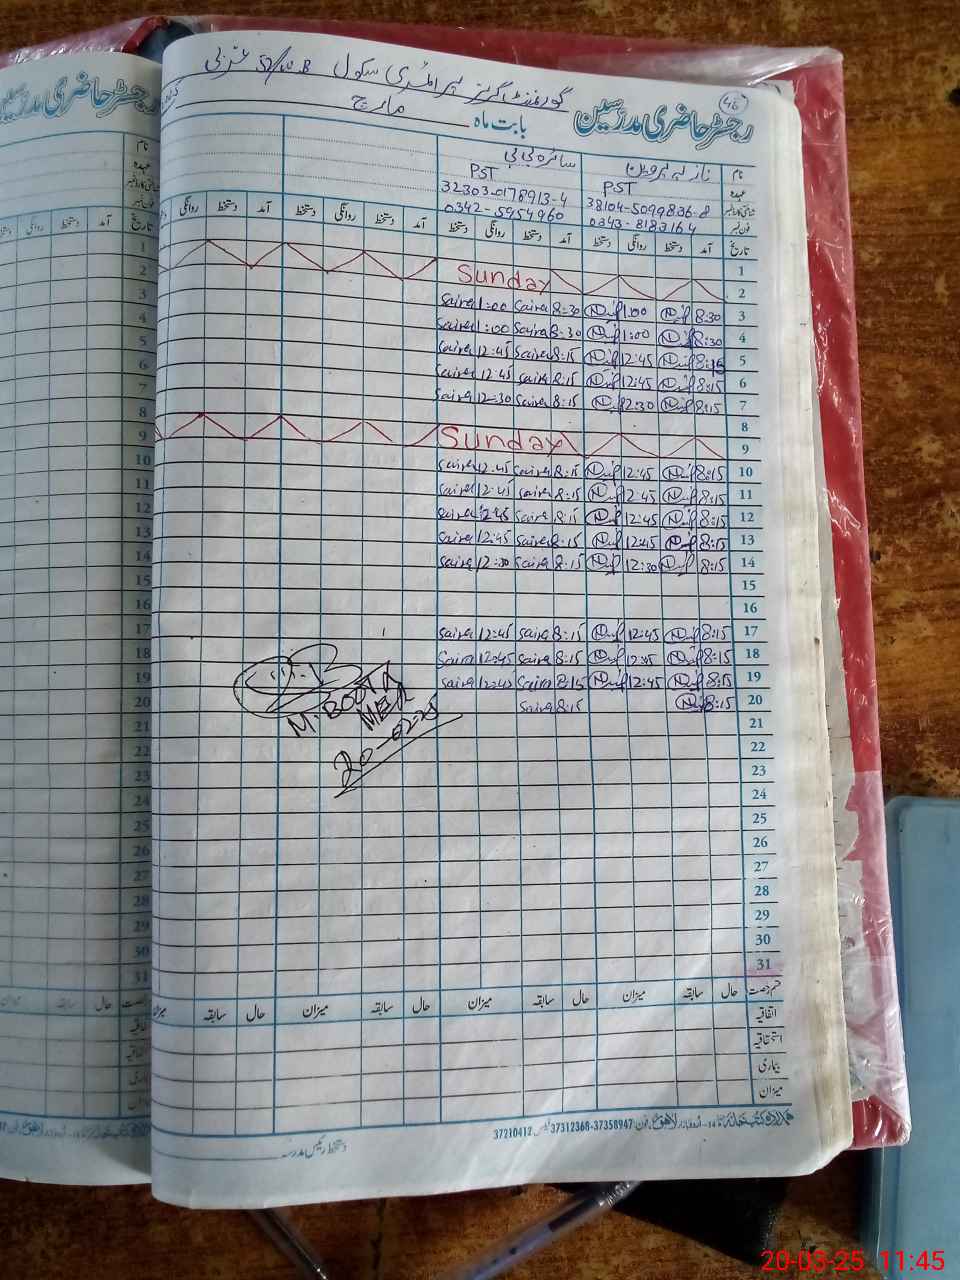 46
رجسٹر حاضری مدرسین
گورنمنٹ گرلز پرائمری سکول 52/10.B غربی
بابت ماہ مارچ
نام نازیہ پروین سائرہ بی بی
عہدہ PST PST
38104-5099836-8 32303-0178913-4
فون نمبر 0343-8183164 0342-5954960
تاریخ آمد دستخط روانگی دستخط آمد دستخط روانگی دستخط آمد دستخط روانگی دستخط آمد دستخط روانگی
1
2 Sunday
3 8:30 1:00 8:30 Saira 1:00 Saira
4 8:30 1:00 8:30 Saira 1:00 Saira
5 8:15 12:45 8:15 Saira 12:45 Saira
6 8:15 12:45 8:15 Saira 12:45 Saira
7 8:15 12:30 8:15 Saira 12:30 Saira
8
9 Sunday
10 8:15 12:45 8:15 Saira 12:45 Saira
11 8:15 12:45 8:15 Saira 12:45 Saira
12 8:15 12:45 8:15 Saira 12:45 Saira
13 8:15 12:45 8:15 Saira 12:45 Saira
14 8:15 12:30 8:15 Saira 12:30 Saira
15
16
17 8:15 12:45 8:15 Saira 12:45 Saira
18 8:15 12:45 8:15 Saira 12:45 Saira
19 8:15 12:45 8:15 Saira 12:45 Saira
20 8:15 8:15 Saira
M. BOOTA
MEA
20-02-25
21
22
23
24
25
26
27
28
29
30
31
قسم رخصت حال سابقہ میزان حال سابقہ میزان حال سابقہ میزان حال سابقہ
اتفاقیہ
استحقاقیہ
بیماری
میزان
لاہور فون: 37358947-37312368 فیکس 37210412
دستخط رئیس مدرسہ
20-03-25 11:45